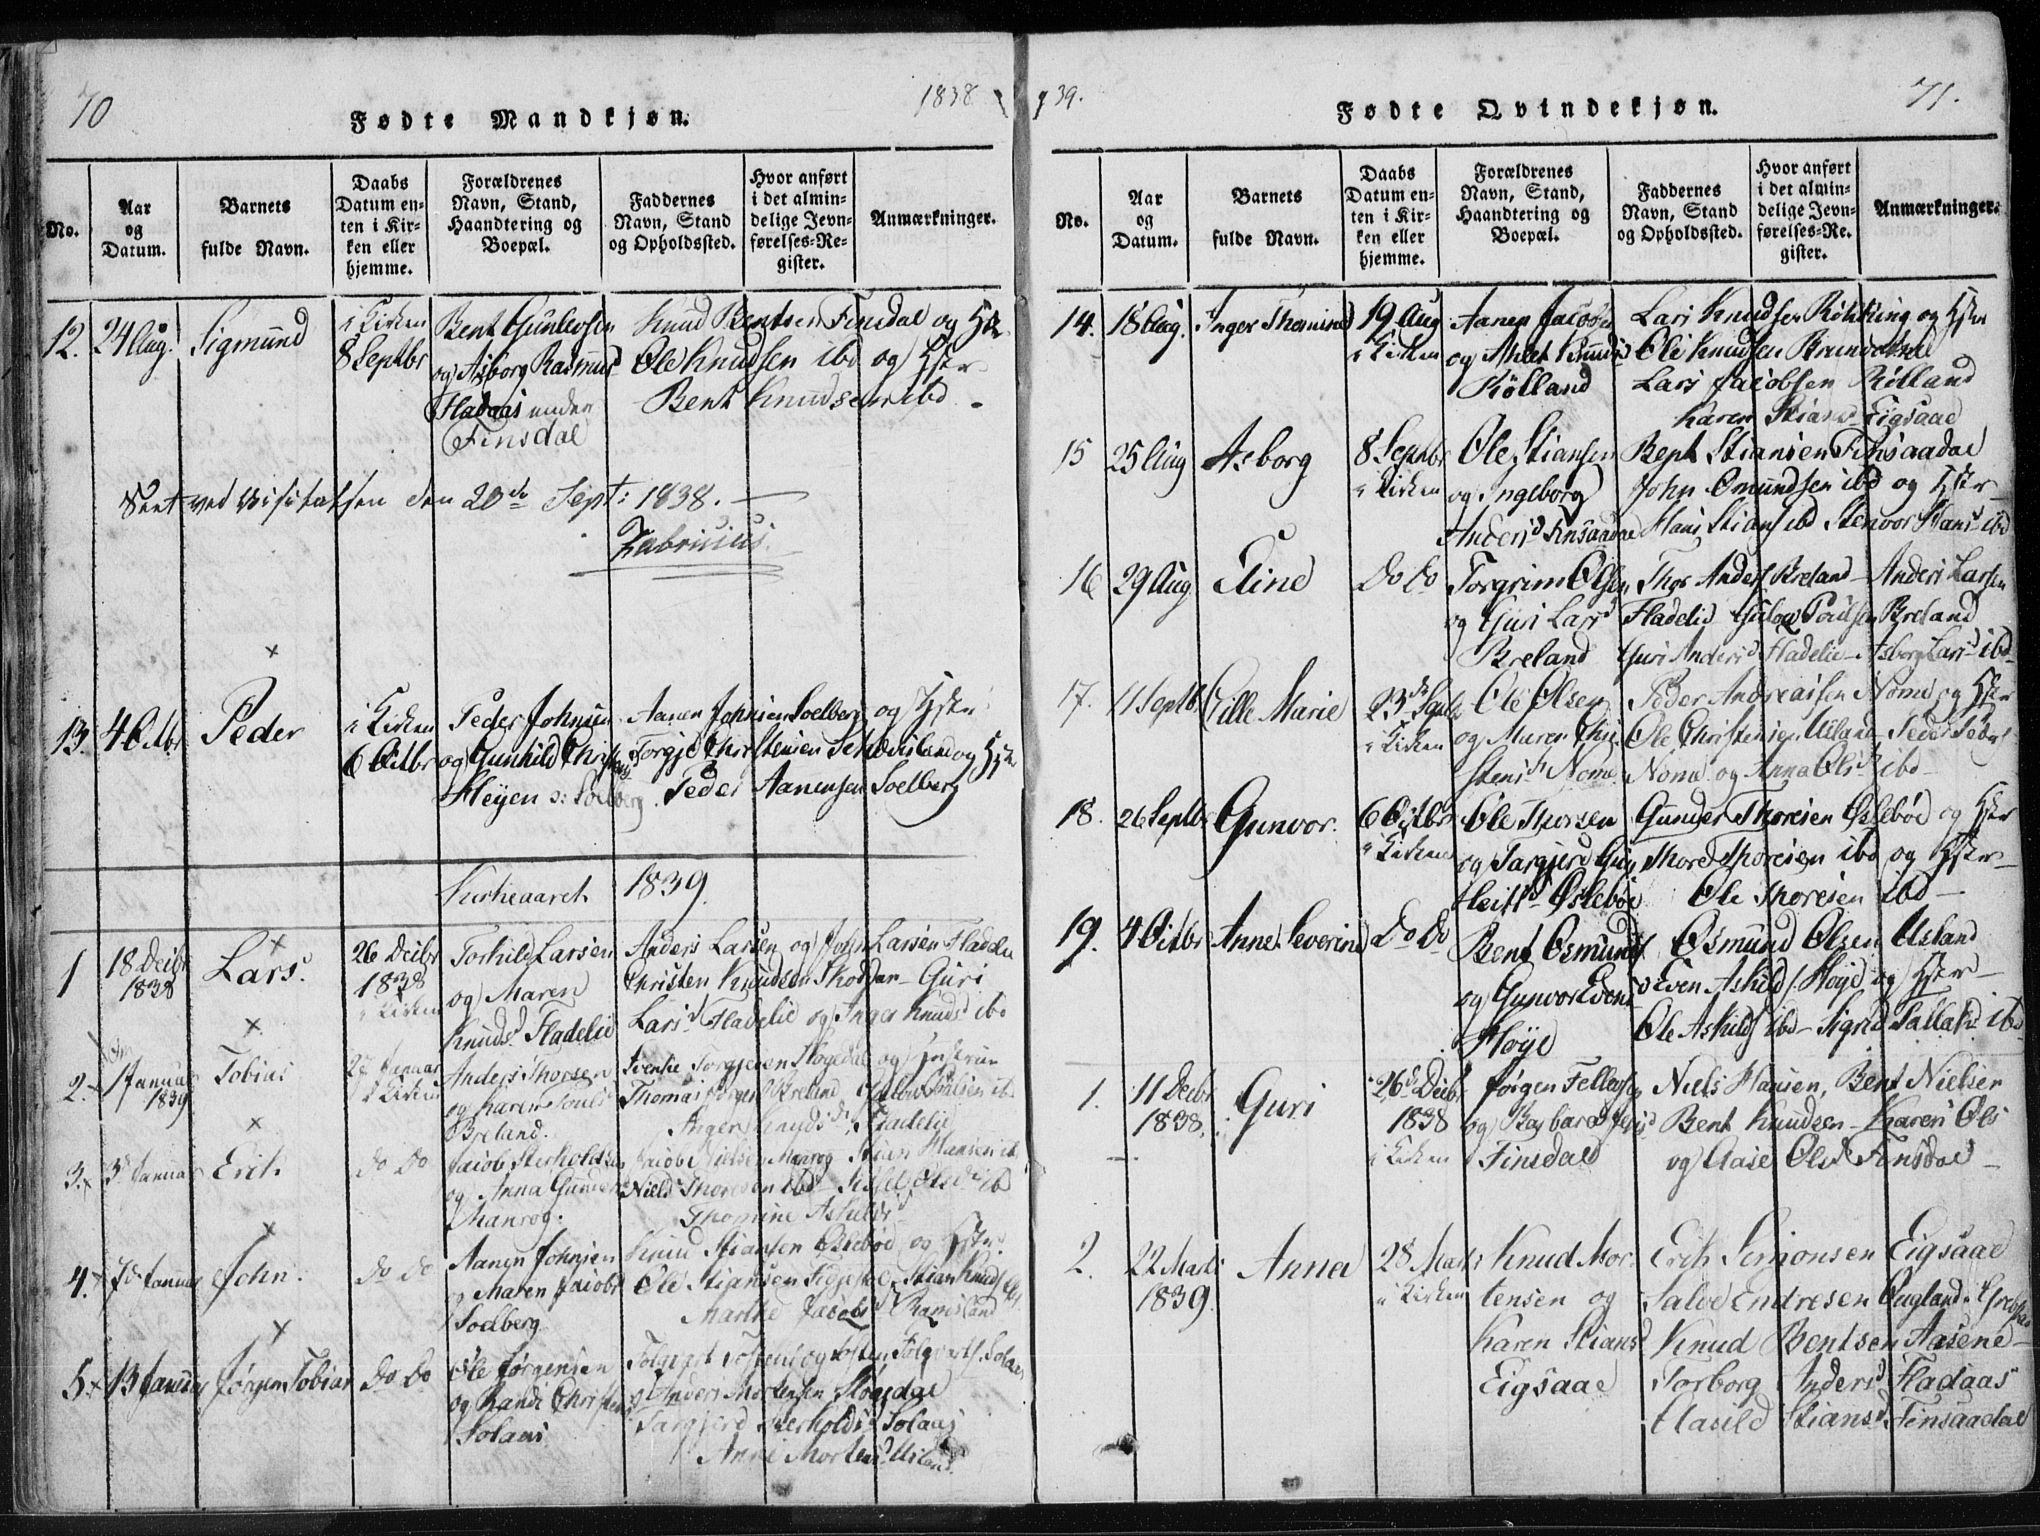 70
1838
Fødte Mandkjøn.
No.
Aar og Datum.
Barnets fulde Navn.
Daabs Datum enten i Kirken eller hjemme.
Forældrenes Navn, Stand, Haandtering og Boepæl.
Faddernes Navn, Stand og Opholdssted.
Hvor anført i det almindelige Jevnførelses-Register.
Anmærkninger.
12. 24 Aug. Sigmund
i Kirken
8 Septbr
Bent Gunlevsen
og Asborg Rasmus
Fladaas under
Finsdal
Knud Bentsen Finsdal og Hstr
Ole Knudsen ibd og Hstr
Bent Knudsen ibd
Seet ved Visitatsen den 20de Sept: 1838.
13. 4 Octbr Peder
i Kirken
6 Octbr
Peder Johnsen
og Gunhild Christens
Høyen v: Soelberg
Aanen Johnsen Soelberg og Hstru
Torgje Christensen og Hstr
Peder Aanensen Soelberg
Kirkeaaret 1839.
1 18 Decbr 1838 Lars.
26 Decbr
1838
i Kirken
Torkild Larsen
og Maren
Knudsd Fladelid
Anders Larsen og John Larsen Fladelid
Christen Knudsen - Guri
Larsd Fladelid og Inger Knudsd ibd
2. 1 Januar 1839 Tobias
27 Januar
i Kirken
Anders Thorsen
og Karen Pouls
Breland.
Thomas Jørgens Breland Gulov Poulsen ibd
Inger Knudsd Fladelid
3. 5 Januar Erik
do do
Jacob
og Anna Gunders
Manrog.
Jacob Nielsen Manrog Stian Hansen ibd
Niels Thoresen ibd Sissel Olsd ibd
Thomine Askilds
4. 7de Januar John.
do do
Aanen Johnsen
og Maren Jacobs
Soelberg
Knud Stiansen Øslebøe og Hstr.
Ole Stiansen Stian Knuds
Marthe Jacobsd Ramsland
5 13 Januar Jørgen Tobias
do do
Ole Jørgensen
og Randi Christens
Solaas
og Anders Mortensen Høgedal
Targjerd Solaas
Anne Mortensd Usland.
39.
71.
Fødte Qvindekjøn.
No.
Aar og Datum.
Barnets fulde Navn.
Daabs Datum enten i Kirken eller hjemme.
Forældrenes Navn, Stand, Haandtering og Boepæl.
Faddernes Navn, Stand og Opholdssted.
Hvor anført i det almindelige Jevnførelses-Register.
Anmærkninger.
14. 18 Aug. Inger Thomine
19 Aug
i Kirken
Aanen Jacobs
og Knuds
Kølland
Lars Knudsen og Hstr
Ole Knudsen
Lars Jacobsen Kølland
Karen Stians Eigsaae
15 25 Aug Asborg
8 Septbr
i Kirken
Ole Stiansen
og Ingeborg
Andersd Finsaadal
Bent Stiansen Finsaadal
John Omundsen ibd og Hstr
Hans Stians ibd Stenvor Hans ibd
16 29 Aug Eline
do do
Torgrim Olsen
og Guri Larsd
Breland
Thor Anders Breland - Anders Larsen
Fladelid Gulov Poulsen Breland
Guri Andersd Fladelid - Asborg Larsd ibd
17. 11 Septb. Cille Marie
23de Septbr
i Kirken
Ole Olsen
og Maren Chri
stensd Nome
Peder Andreassen Nome og Hstr
Ole Christensen Usland Peder Peders
Nome og Anna Olsd ibd
18. 26 Septbr Gunvor.
6 Octbr
i Kirken
Ole Thorsen
og Targjerd Gun
Øslebøe
Gunder Thoresen Øslebøe og Hstr
Thore Thoresen ibd og Hstr
Ole Thoresen ibd
19. 4 Octbr Anne Severine
do do
Bent Osmunds
og Gunvor Evens
Høye
Osmund Olsen Usland
Even Askilds Høye og Hstr
Ole Askilds ibd - Sigrid Tallaks ibd
1. 11 Decbr 1838. Guri
26de Decbr
1838
i Kirken
Jørgen Tellefsen
og Barbara Jens
Finsdal
Niels Hansen, Bent Nielsen
Bent Knudsen - Karen Ols
og Aase Olsd Finsdal
2. 22 Marts 1839. Anna
28 Marts
i Kirken
Knud Mor
tensen og
Karen Stiansd
Eigsaae
Erik Simonsen Eigsaae
Salve Endresen Øugland
Knud Bentsen Aasene
Torborg Andersd Fladaas
Stiansd Finsaadal